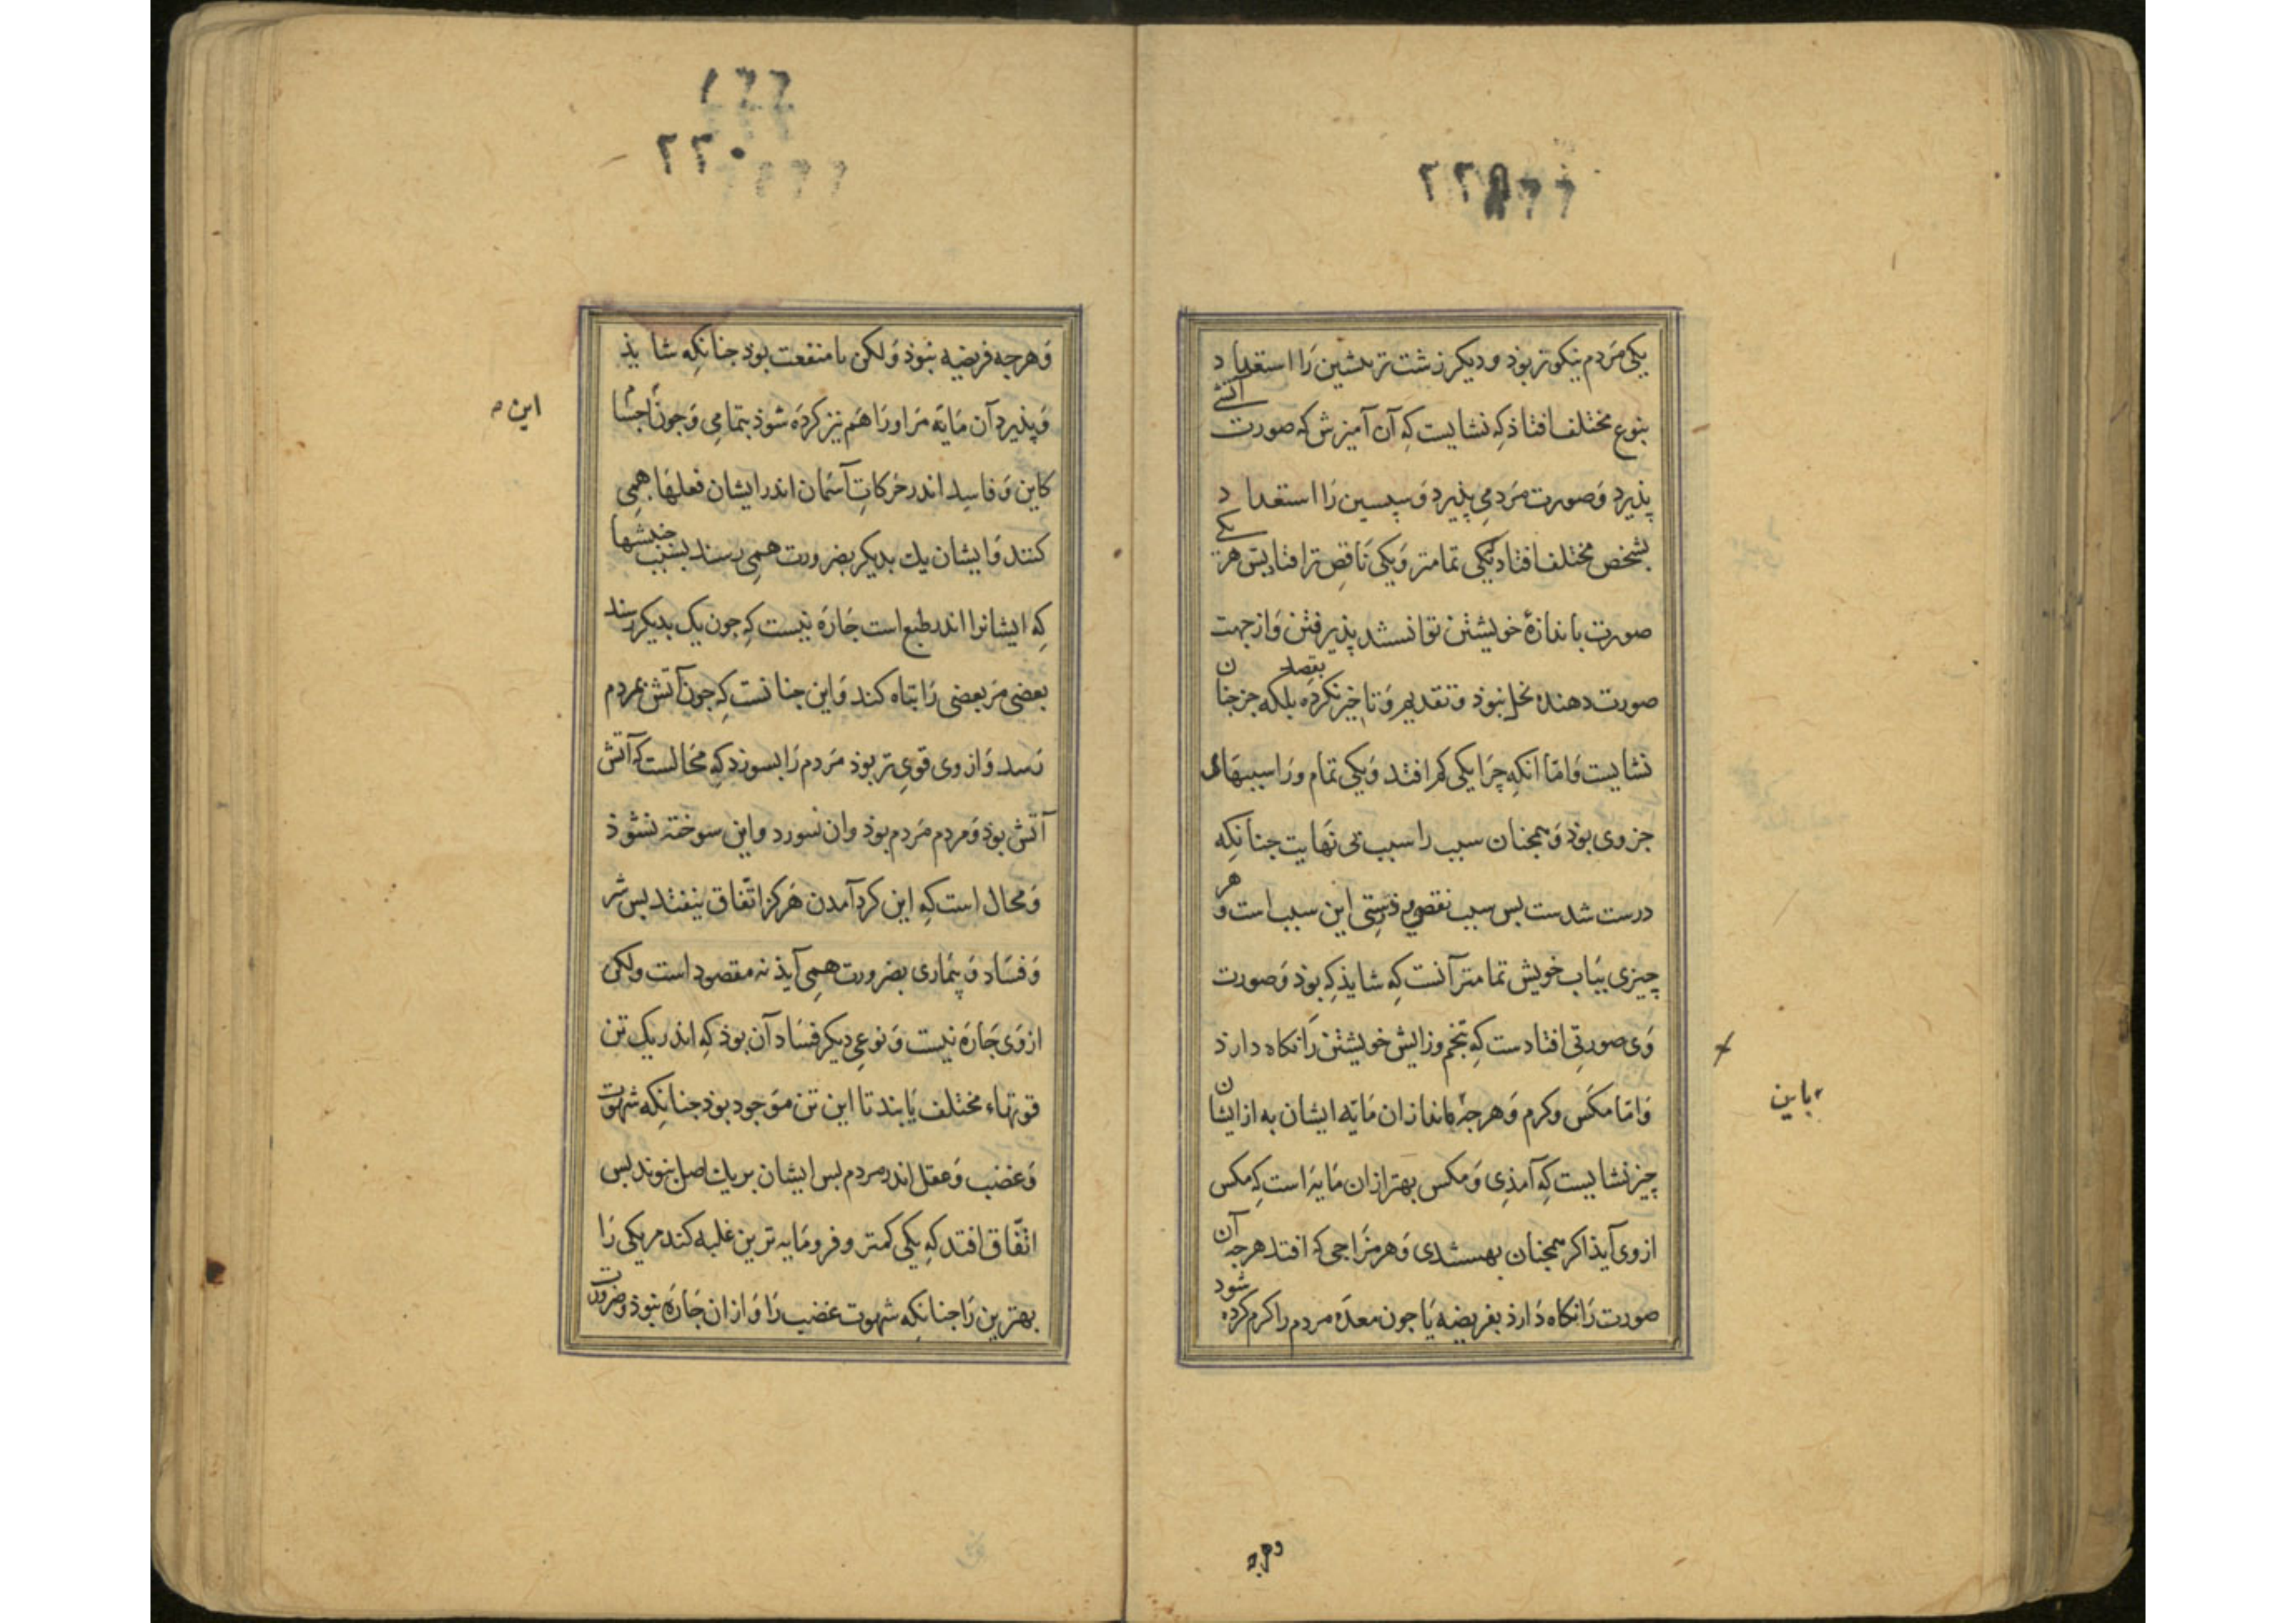 یکی مردم نیکوتر بوذ و دیکر زشت تر پیشین را استعداد
بنوع مختلف افتاذ که نشایست که آن آمیزش که صورت
پذیرد و صورت مردمی پذیرد و سپسین را استعداد
بشخص مختلف افتاد یکی تمامتر و یکی ناقص تر افتاد بس هر یکی
صورت باندازهٔ خویشتن توانستند پذیرفتن و از جهت
صورت دهنده بخل نبوذ و تقدیم و تاخیر نکرده بقصد بلکه جز جنان
نشایست و اما انکه چرا یکی کم افتد و یکی تمام ورا سببهای
جزوی بوذ و همجنان سبب را سبب بی نهایت جنانکه
درست شدست بس سبب نقص و درستی این سبب است و هر
چیزی بباب خویش تمامتر آنست که شایذ که بوذ و صورت
وی صورتی افتادست که بتخم و زایش خویشتن را نکاه دارذ
و اما مکس و کرم و هرجه مانند از ان مایه ایشان به از ایشان
چیز نشایست که آمذی و مکس بهتر از ان مایه است که مکس
از وی آیذ اکر همجنان بهستدی و هر مزاجی که افتد هرجه آن
صورت را نکاه دارذ بفریضه یا جون معده مردم را کرم کرده شود
باین
وهرجه
۲۲۰
و هرجه فریضه نبوذ و لکن با منفعت بوذ جنانکه شایذ
و پذیرد آن مایه مر او را هم نیز کرده شوذ بتمامی و جون
این
کاین و فاسد اندر حرکات آسمان اندر ایشان فعلها همی
کنند و ایشان یک بدیکر بضرورت همی رسند بسبب جنبشها
که ایشانرا اندر طبع است جاره نیست که جون یک بدیکر رسند
بعضی مر بعضی را تباه کند و این جنانست که جون آتش بمردم
رسد و از وی قوی تر بوذ مردم را بسوزد که محالست که آتش
آتش بوذ و مردم مردم بوذ وان نسوزد و این سوخته نشوذ
و محال است که این کرد آمدن هرکز اتفاق نیفتد بس شر
و فساد و بیماری بضرورت همی آیذ نه مقصود است ولکن
از وی جاره نیست و نوعی دیکر فساد آن بوذ که اندر یک تن
قوتهاء مختلف یابند تا این تن موجود بوذ جنانکه شهوت
و غضب و عقل اندر مردم بس ایشان بر یک اصل نبوند بس
اتفاق افتد که یکی کمتر و فرومایه ترین غلبه کند مر یکی را
بهترین را جنانکه شهوت غضب را و از ان جاره نبوذ و ضرورت